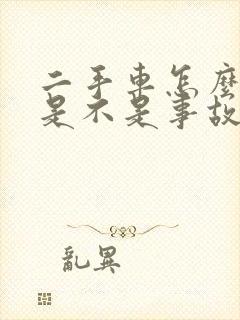 二手車怎麼
是不是事故
亂異